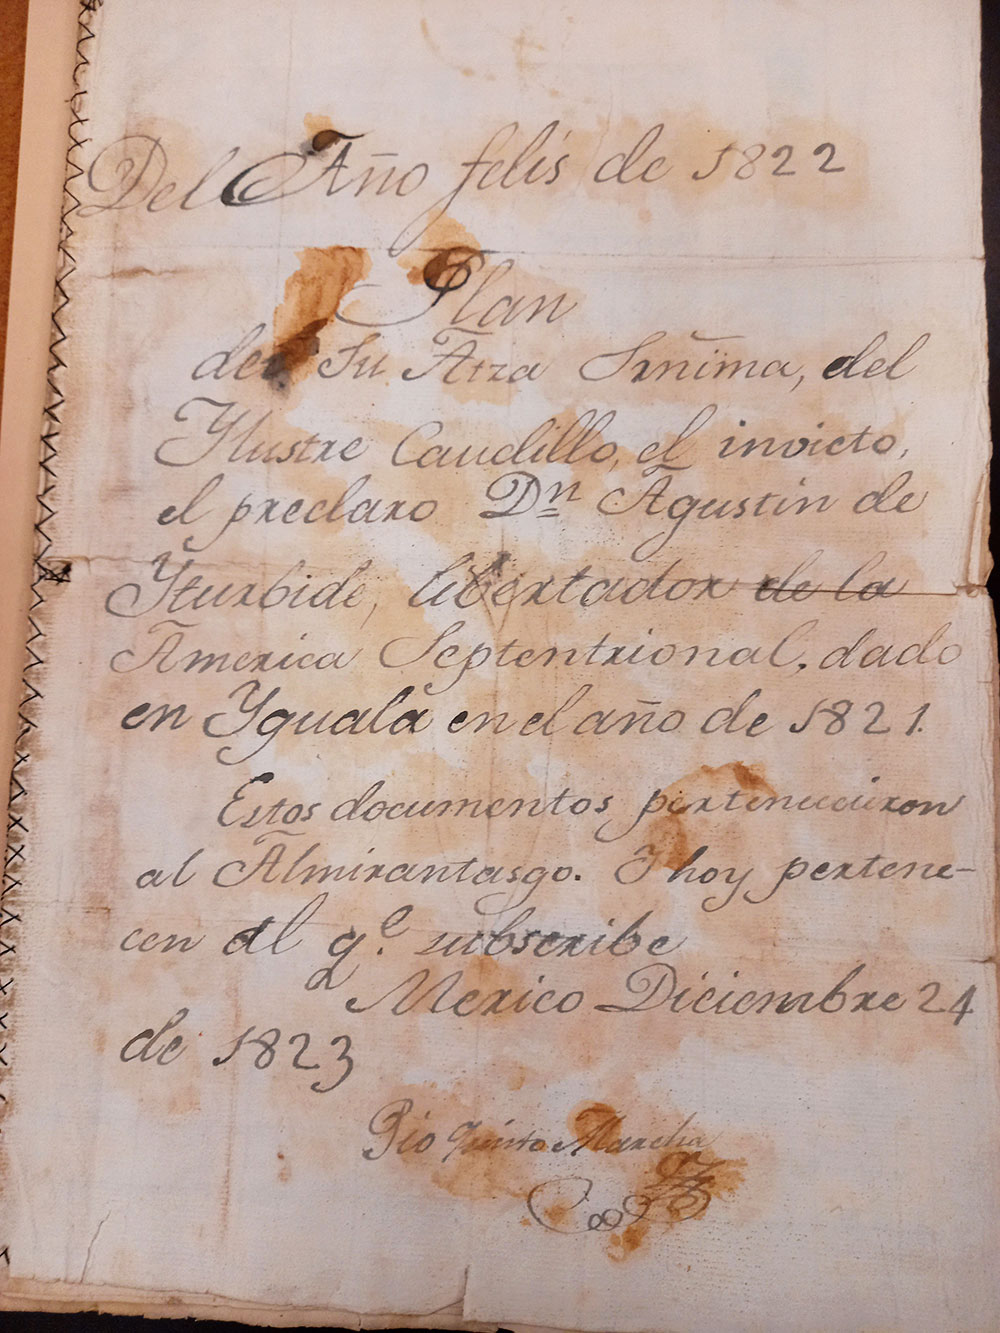 Del Año felis de 1822
Plan
de Su Atza Smñima, del
Ylustre Caudillo, el invicto,
el preclaro Dn Agustin de
Yturbide, libertador de la
America Septentrional, dado
en Yguala en el año de 1821.
Estos documentos pertenecieron
al Almirantasgo. I hoy pertene-
cen al qe. subscribe
Mexico Diciembre 24
de 1823
Pio Quinto Marcha